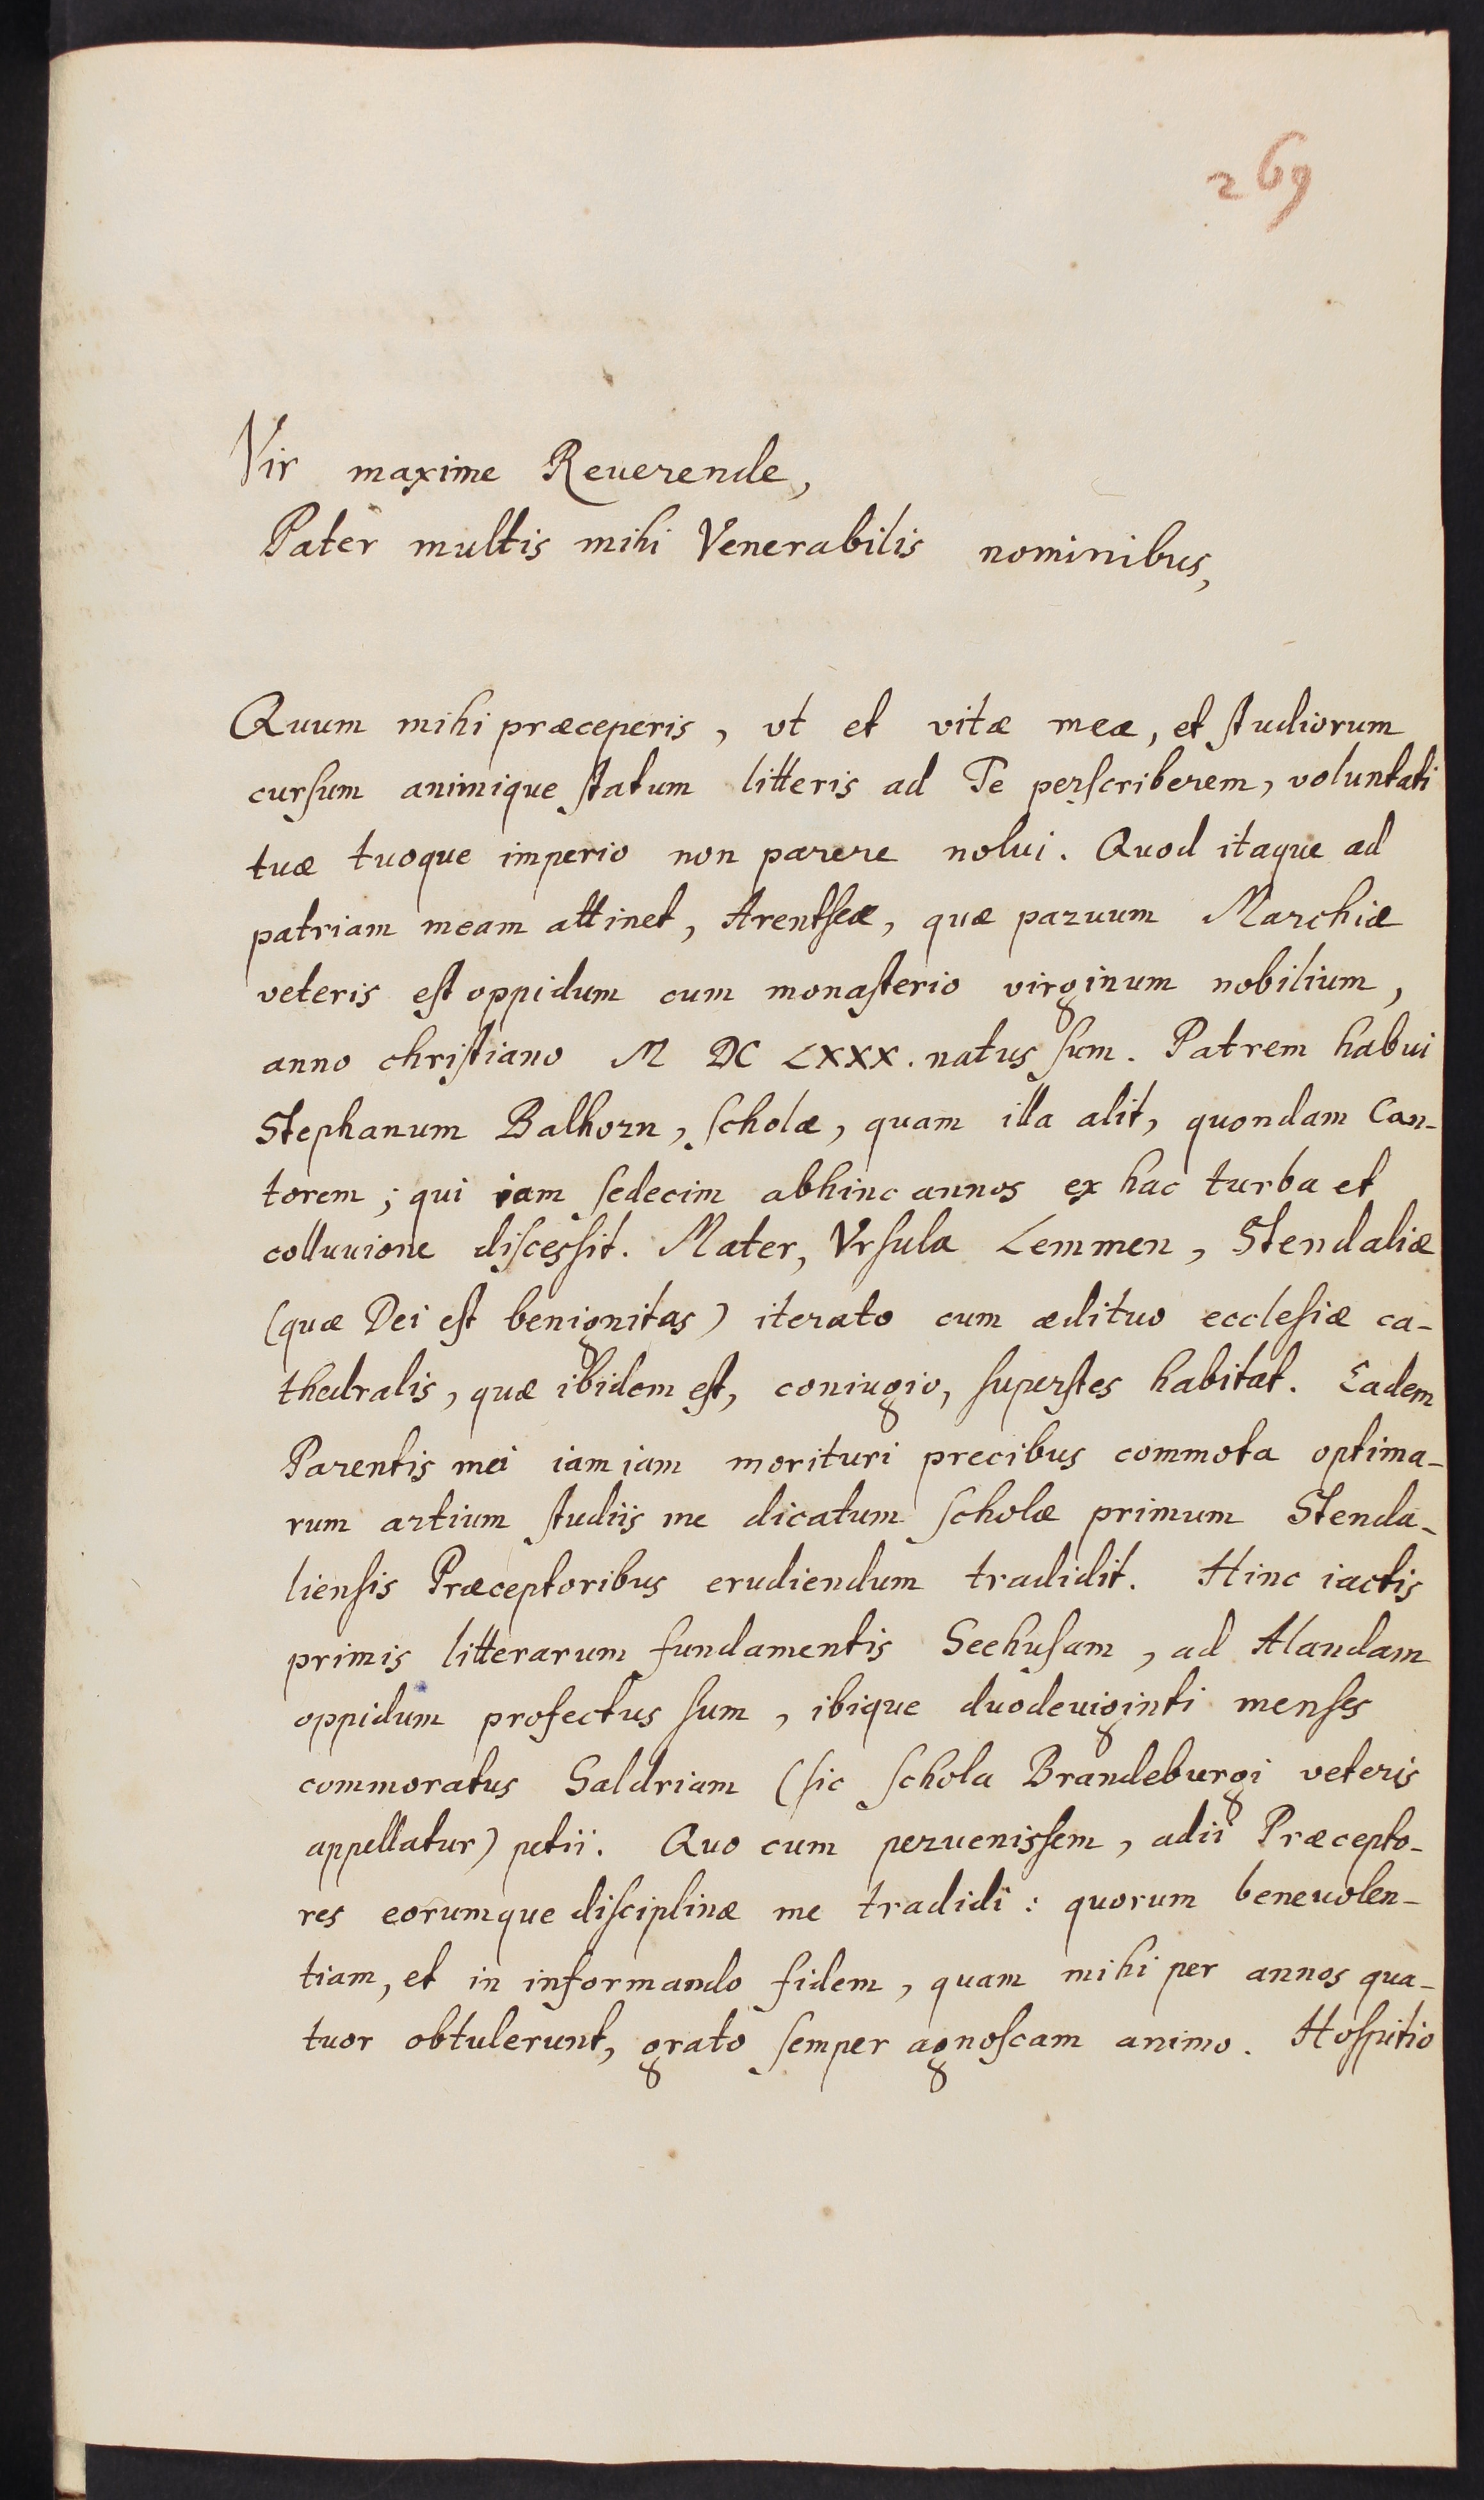 269
Vir maxime Reuerende,
Pater multis mihi Venerabilis nominibus,
Quum mihi præceperis, vt et vitæ meæ, et ſtudiorum
curſum animique ſtatum litteris ad Te perſcriberem, voluntati
tuæ tuoque imperio non parere nolui. Quod itaque ad
patriam meam attinet, Arentſeæ, quæ paruum Marchiæ
veteris eſt oppidum cum monaſterio virginum nobilium,
anno chriſtiano M DC LXXX. natus ſum. Patrem habui
Stephanum Balhorn, ſcholæ, quam illa alit, quondam Can-
torem; qui iam ſedecim abhinc annos ex hac turba et
colluuione diſcesſit. Mater, Vrſula Lemmen, Stendaliæ
(quæ Dei eſt benignitas) iterato cum ædituo eccleſiæ ca-
thedralis, quæ ibidem eſt, coniugio, ſuperſtes habitat. Eadem
Parentis mei iam iam morituri precibus commota optima-
rum artium ſtudiis me dicatum ſcholæ primum Stenda-
lienſis Præceptoribus erudiendum tradidit. Hinc iactis
primis litterarum fundamentis Seehuſam, ad Alandam
oppidum profectus ſum, ibique duodeuiginti menſes
commoratus Saldriam (ſic ſchola Brandeburgi veteris
appellatur) petii. Quo cum peruenisſem, adii Præcepto-
res eorumque diſciplinæ me tradidi: quorum beneuolen-
tiam, et in informando fidem, quam mihi per annos qua-
tuor obtulerunt, grato ſemper agnoſcam animo. Hoſpitio